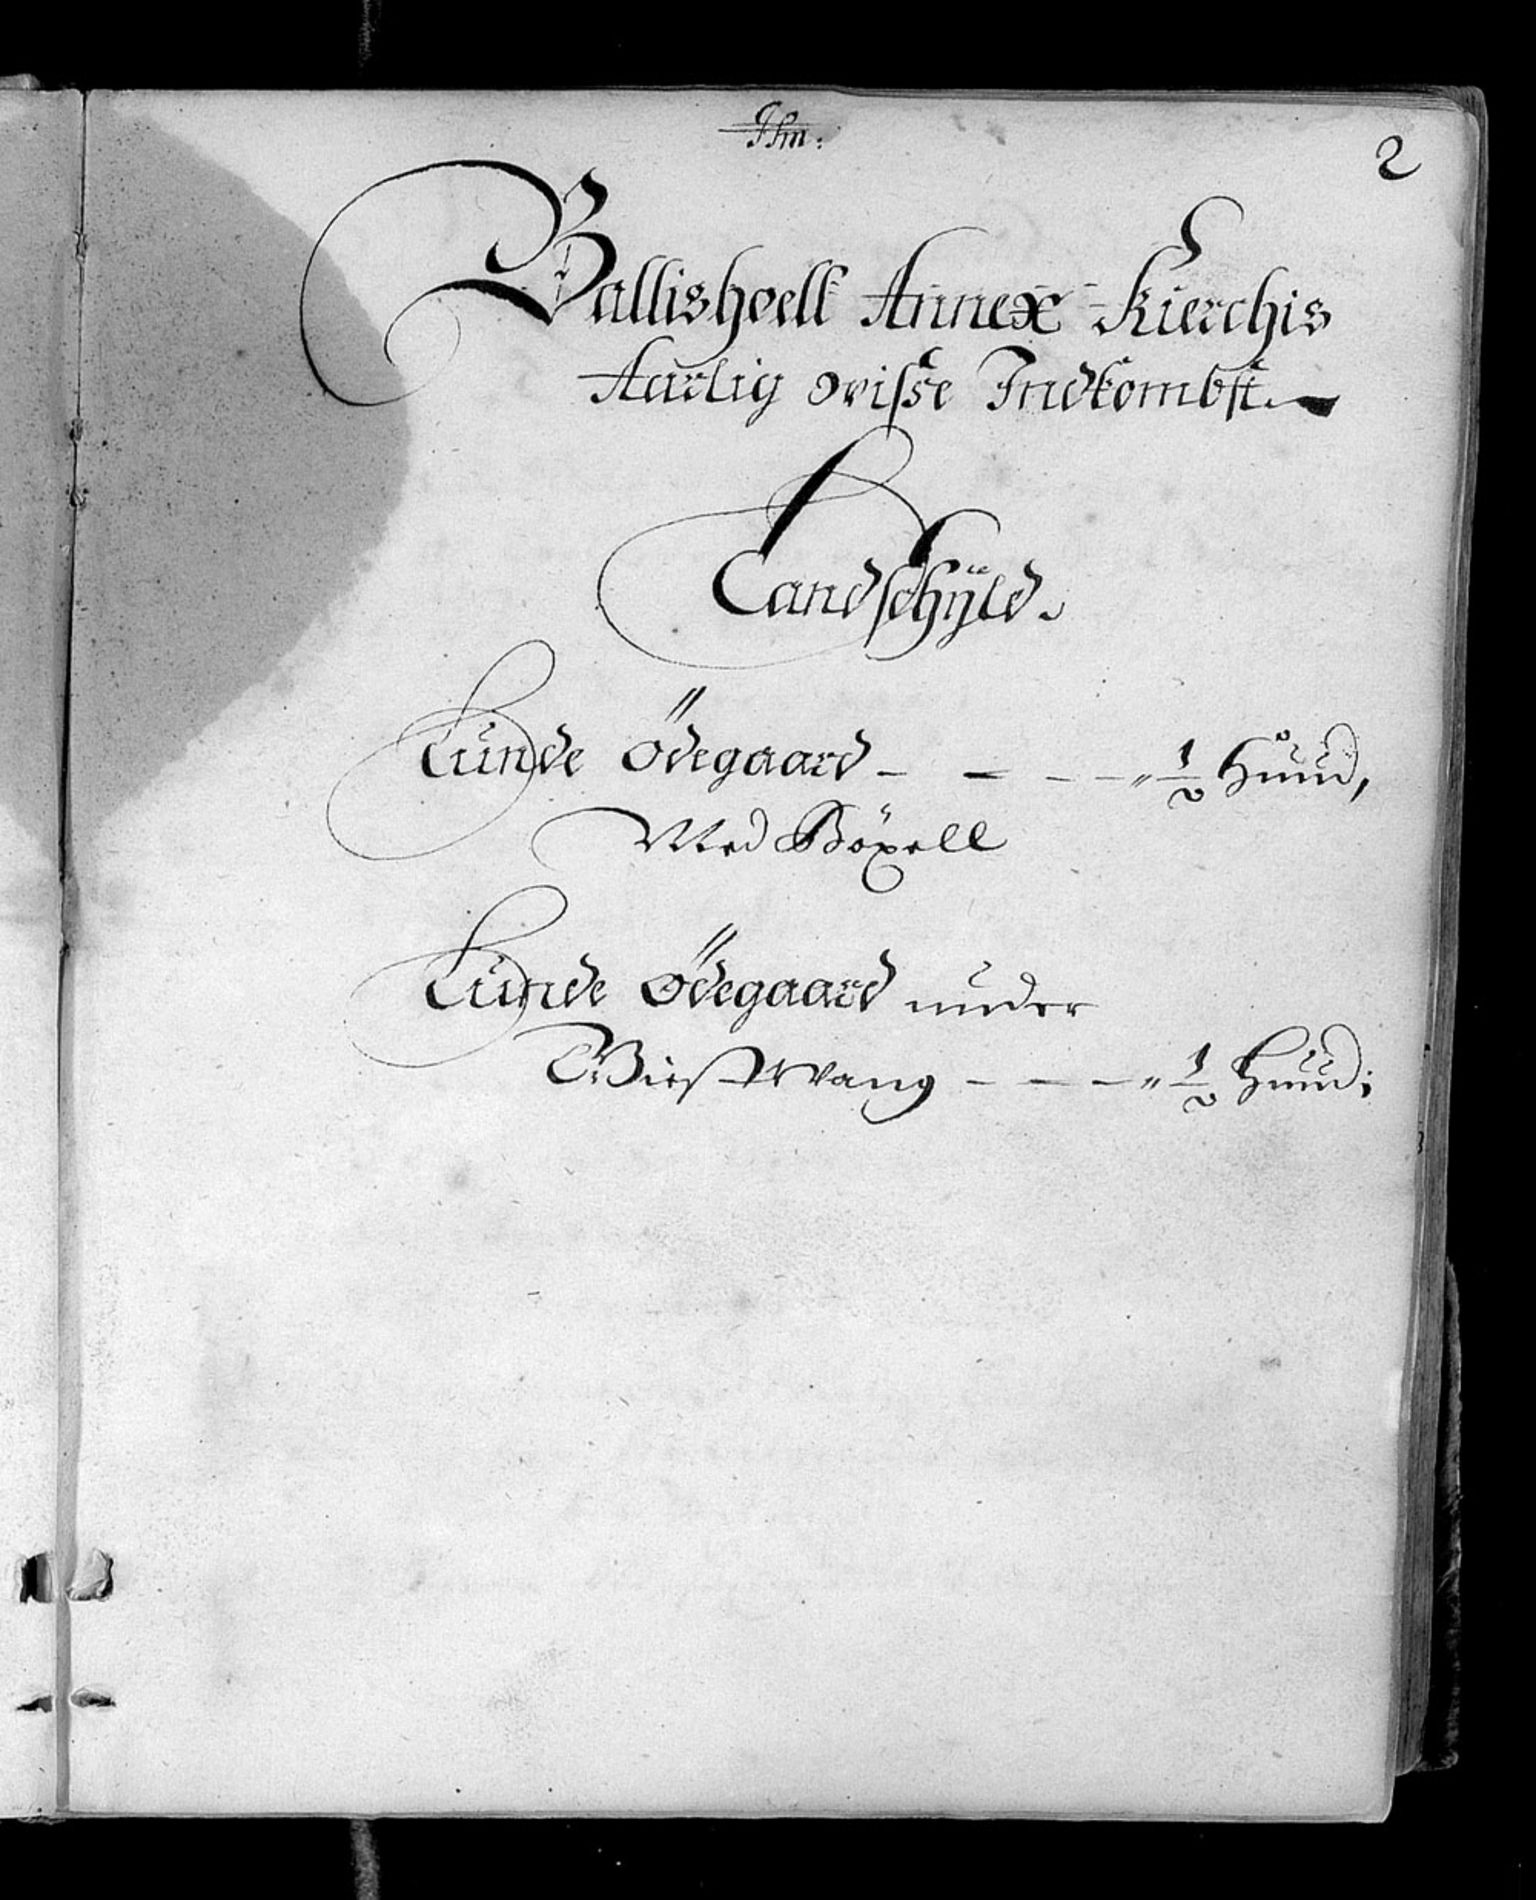 2
Ballishoell Annex Kierchis
Aarlig visse Indkombst.
Landschÿld.
Lunde Ödegaard - - - - " 1/2 Huud,
Med Böxell
Lunde Ödegaard under
Wiestervang - - - " 1/2 Huud;